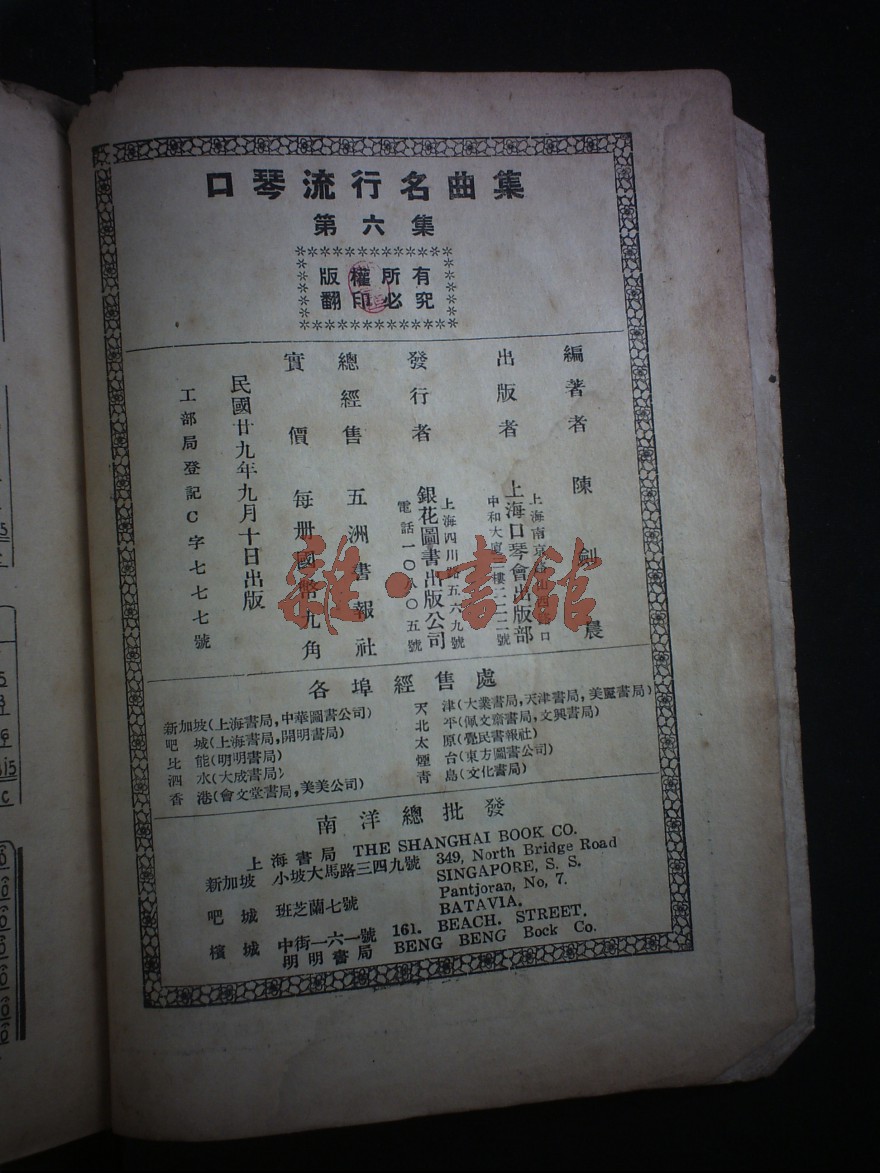 口琴流行名曲集
第六集
版權所有
翻印必究
編著者 陳劍晨
出版者 上海口琴會出版部
上海南京路
中和大廈二樓二二二號
發行者 銀花圖書出版公司
上海四川路五六九號
電話一〇五〇五號
總經售 五洲書報社
實價 每冊國幣九角
民國廿九年九月十日出版
工部局登記C字七七七號
各埠經售處
新加坡(上海書局,中華圖書公司)
吧城(上海書局,開明書局)
比能(明明書局)
泗水(大成書局)
香港(會文堂書局,美美公司)
天津(大業書局,天津書局,美麗書局)
北平(佩文齋書局,文興書局)
太原(覺民書報社)
煙台(東方圖書公司)
青島(文化書局)
南洋總批發
上海書局 THE SHANGHAI BOOK CO.
新加坡 小坡大馬路三四九號 349, North Bridge Road
SINGAPORE, S. S.
吧城 班芝蘭七號 Pantjoran, No, 7.
BATAVIA.
檳城 中街一六一號 161. BEACH. STREET.
明明書局 BENG BENG Bock Co.
雜·書館